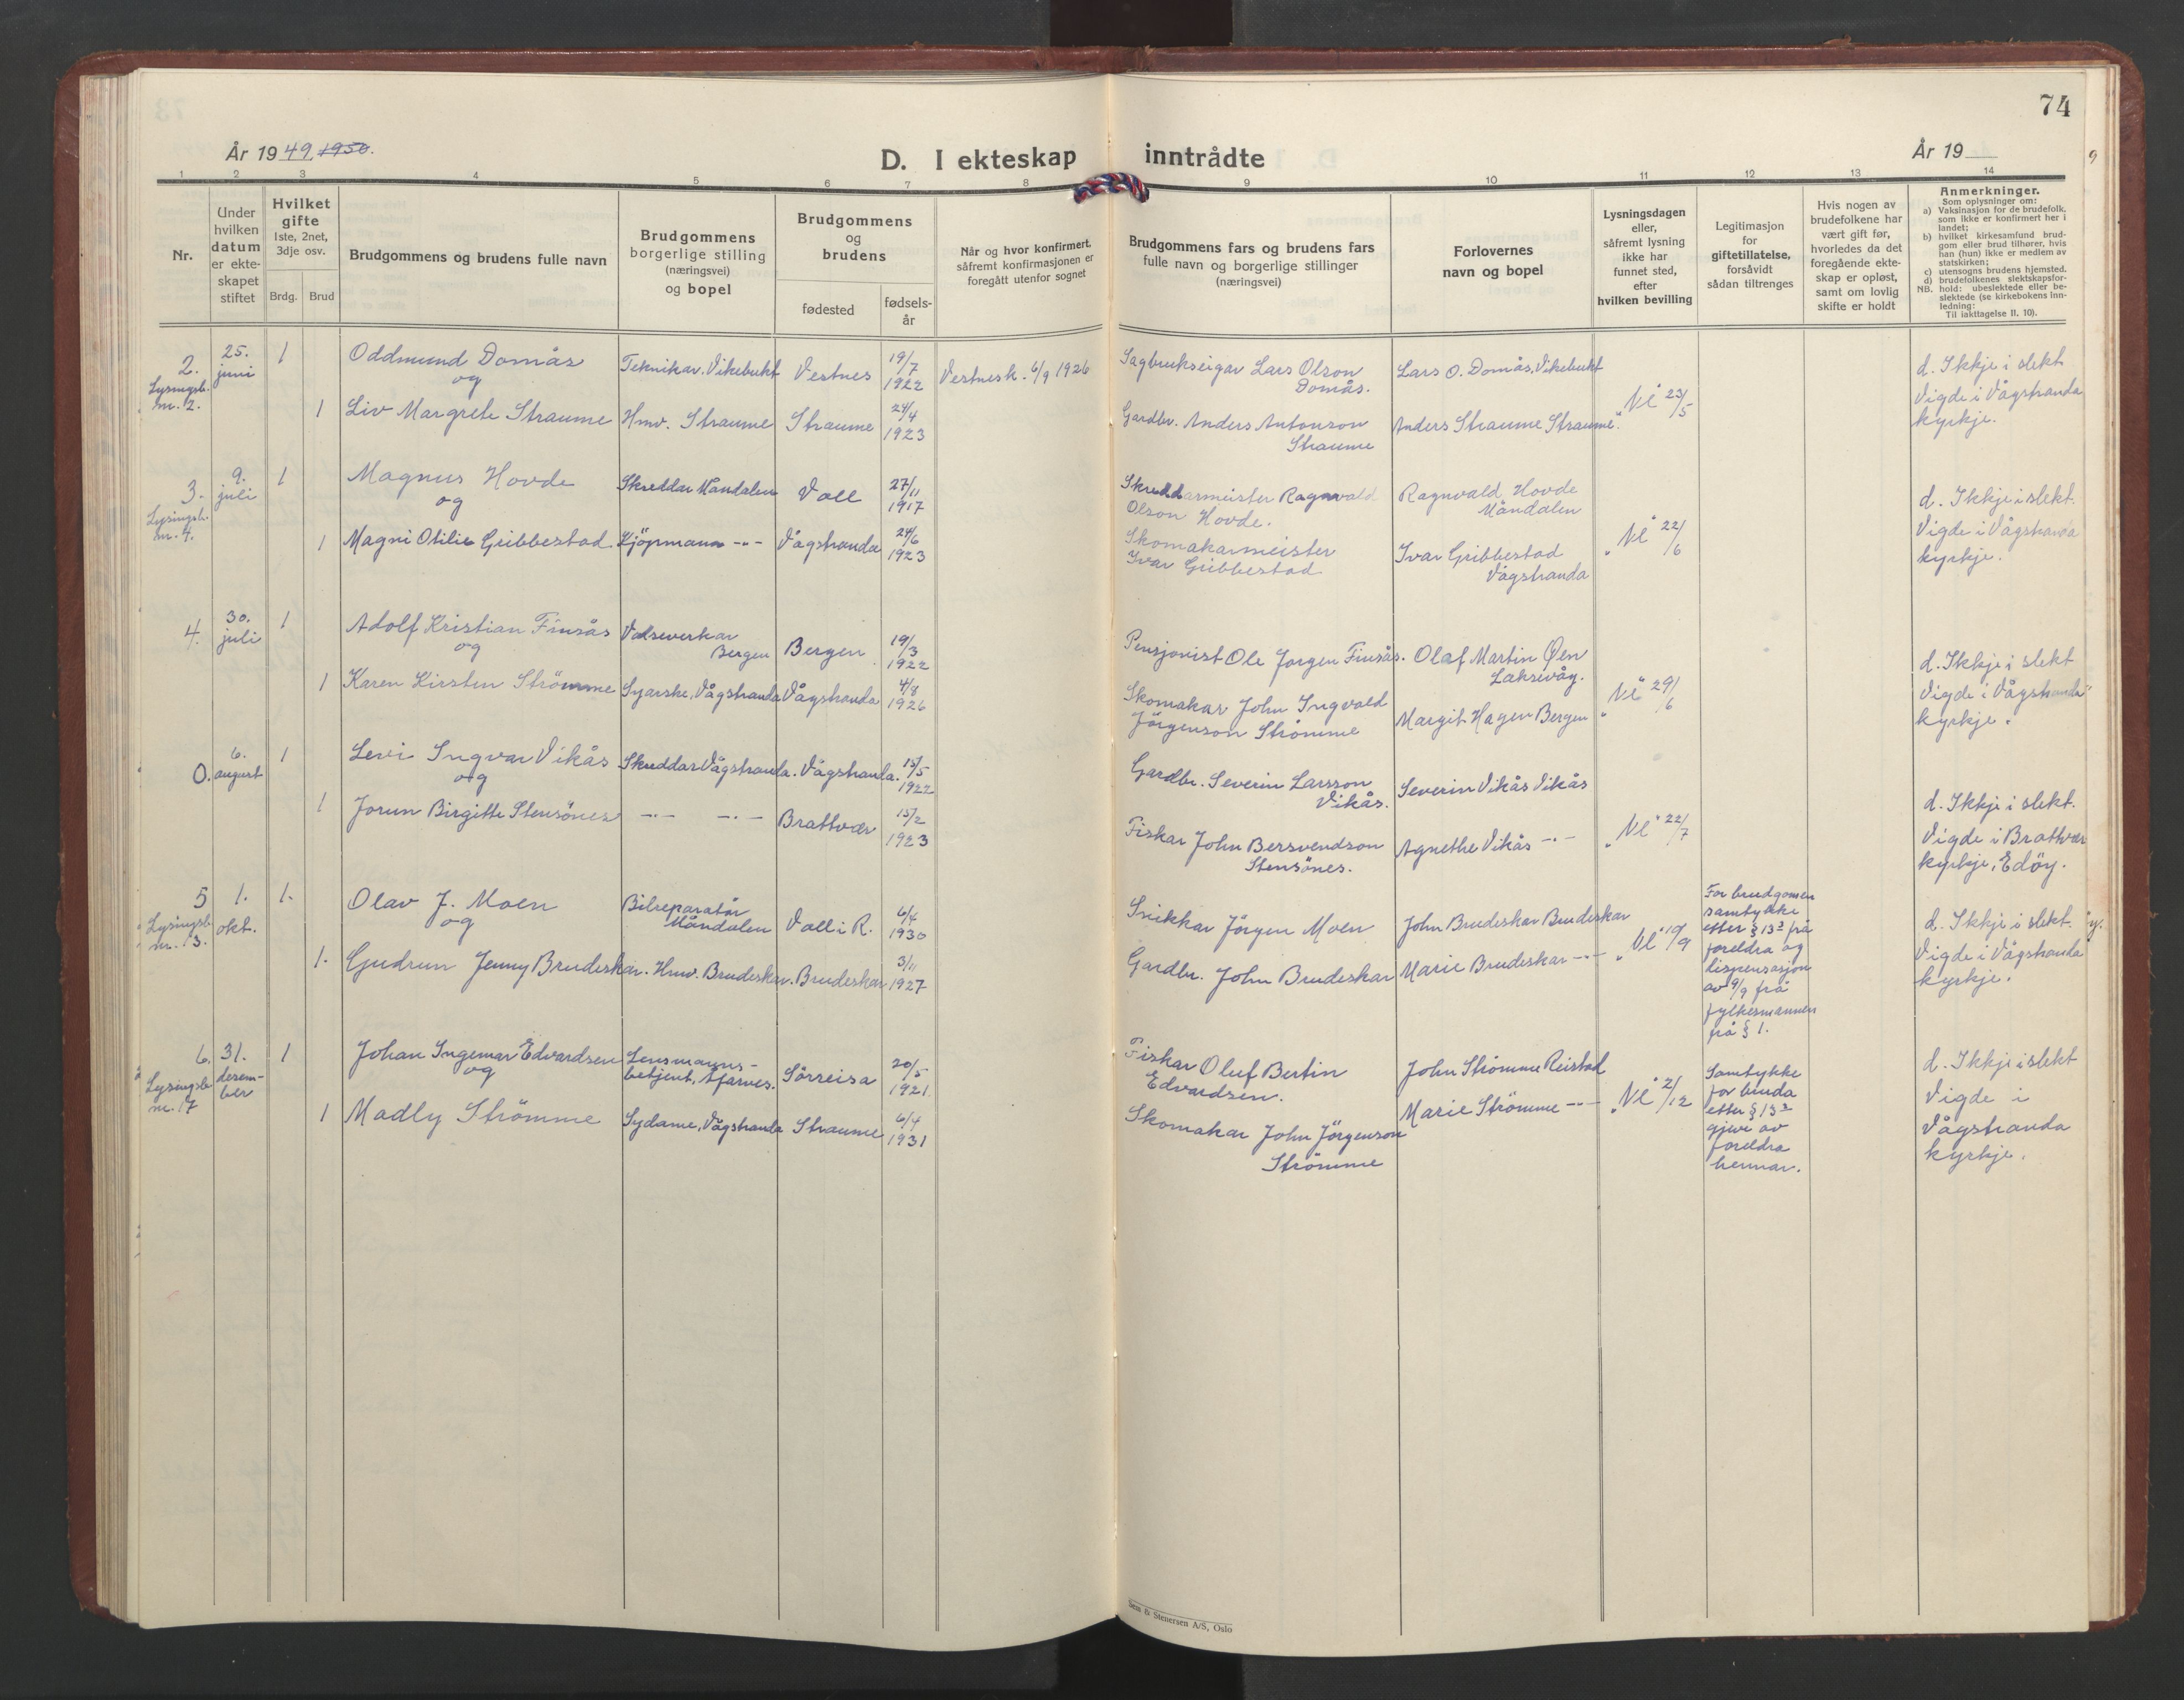 74
År 1949. 1950.
D. I ekteskap inntrådte
År 19
1 2 3 4 5 6 7 8 9 10 11 12 13 14
Nr.
Under
hvilken
datum
er ekte-
skapet
stiftet
Hvilket
gifte
1ste, 2net,
3dje osv.
Brdg. Brud
Brudgommens og brudens fulle navn
Brudgommens
borgerlige stilling
(næringsvei)
og bopel
Brudgommens
og
brudens
fødested
fødsels-
år
Når og hvor konfirmert,
såfremt konfirmasjonen er
foregått utenfor sognet
Brudgommens fars og brudens fars
fulle navn og borgerlige stillinger
(næringsvei)
Forlovernes
navn og bopel
Lysningsdagen
eller,
såfremt lysning
ikke har
funnet sted,
efter
hvilken bevilling
Legitimasjon
for
giftetillatelse,
forsåvidt
sådan tiltrenges
Hvis nogen av
brudefolkene har
vært gift før,
hvorledes da det
foregående ekte-
skap er opløst,
samt om lovlig
skifte er holdt
Anmerkninger.
Som oplysninger om:
a) Vaksinasjon for de brudefolk,
som ikke er konfirmert her i
landet;
b) hvilket kirkesamfund brud-
gom eller brud tilhører, hvis
han (hun) ikke er medlem av
statskirken;
c) utensogns brudens hjemsted.
d) brudefolkenes slektskapsfor-
NB. hold: ubeslektede eller be-
slektede (se kirkebokens inn-
ledning:
Til iakttagelse II. 10).
2.
Lysingsb.
nr. 2.
25.
juni
1
Oddmund Domås
og
Teknikar. Vikebukt
Vestnes
19/7
1922
Vestnesk. 6/9 1926
Sagbrukseigar Lars Olson
Domås.
Lars O. Domås, Vikebukt
1
Liv Margrete Straume
Hmv. Straume
Straume
24/4
1923
Gardbr. Anders Antonson
Straume
Anders Straume Straume.
"Nl" 23/5
d. Ikkje i slekt
Vigde i Vågstranda
kyrkje.
3.
Lysingsb.
nr. 4.
9.
juli
1
Magnus Hovde
og
Skreddar Måndalen
Voll
27/11
1917
Skreddarmeister Ragnvald
Olson Hovde.
Ragnvald Hovde
Måndalen
1
Magni Otilie Gribbestad.
Kjöpmann -"-
Vågstranda
24/6
1923
Skomakarmeister
Ivar Gribbestad
Ivar Gribbestad
Vågstranda
"Nl" 22/6
d. Ikkje i slekt.
Vigde i Vågstranda
kyrkje.
4.
30.
juli
1
Adolf Kristian Finsås
og
Valseverkar
Bergen
Bergen
19/3
1922
Pensjonist Ole Jorgen Finsås.
Olaf Martin Øen
Laksevåg.
1
Karen Kirsten Strömme
Syarske, Vågstranda
Vågstranda
4/8
1926
Skomakar John Ingvald
Jörgenson Strömme
Margit Hagen Bergen
"Nl" 29/6
d. Ikkje i slekt
Vigde i Vågstranda
kyrkje.
0.
6.
august
1
Levi Ingvar Vikås
og
Skreddar Vågstranda.
Vågstranda.
15/5
1922
Gardbr. Severin Larsson
Vikås.
Severin Vikås Vikås
1
Jorun Birgitte Stensönes
-"- -"-
Brattvær
15/2
1923
Fiskar John Bersvendson
Stensönes.
Agnethe Vikås -"-
"Nl" 22/7
d. Ikkje i slekt.
Vigde i Brattvær
kyrkje, Edöy.
5
Lysingsb.
nr. 13.
1.
okt.
1.
Olav J. Moen
og
Bilreparatör
Måndalen
Voll i R.
6/4
1930
Snikkar Jörgen Moen
John Brudeskar Brudeskar
1.
Gudrun Jenny Brudeskar.
Hmv. Brudeskar.
Brudeskar
3/11
1927
Gardbr. John Brudeskar
Marie Brudeskar -"-
"Nl" 10/9
For brudgomen
samtykke
etter § 13² frå
foreldra og
dispensasjon
av 9/9 frå
fylkesmannen
frå § 1.
d. Ikkje i slekt.
Vigde i Vågstranda
kyrkje.
6.
Lysingsb.
nr. 17
31.
desem-
ber
1
Johan Ingemar Edvardsen
og
Lensmanns-
betjent,
Sörreisa
20/5
1921.
Fiskar Oluf Bertin
Edvardsen.
John Strömme Reistad
1
Madly Strömme
Sydame, Vågstranda
Straume
6/4
1931
Skomakar John Jörgenson
Strömme
Marie Strömme -"-
"Nl" 2/12
Samtykke
for bruda
etter § 13²
gjeve av
foreldra
hennar.
d. Ikkje i slekt
Vigde i
Vågstranda
kyrkje.
Sem & Stenersen A/S, Oslo